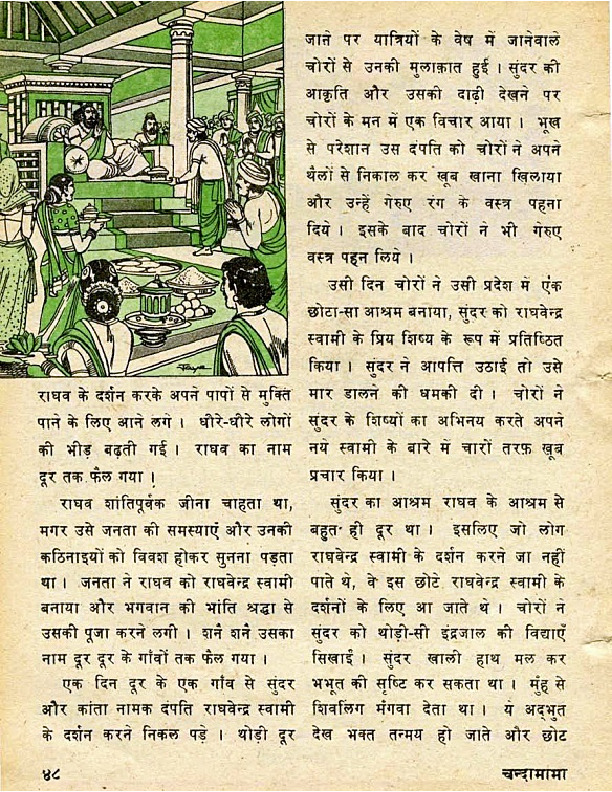 राघव के दर्शन करके अपने पापों से मुक्ति
पाने के लिए आने लगे । धीरे-धीरे लोगों
की भीड़ बढ़ती गई । राघव का नाम
दूर तक फैल गया ।
राघव शांतिपूर्वक जीना चाहता था,
मगर उसे जनता की समस्याएं और उनकी
कठिनाइयों को विवश होकर सुनना पड़ता
था । जनता ने राघव को राघवेन्द्र स्वामी
बनाया और भगवान की भांति श्रद्धा से
उसकी पूजा करने लगी । शनै शनै उसका
नाम दूर दूर के गांवों तक फैल गया ।
एक दिन दूर के एक गाँव से सुंदर
और कांता नामक दंपति राघवेन्द्र स्वामी
के दर्शन करने निकल पड़े । थोड़ी दूर
जाने पर यात्रियों के वेष में जानेवाले
चोरों से उनकी मुलाक़ात हुई । सुंदर की
आकृति और उसकी दाढ़ी देखने पर
चोरों के मन में एक विचार आया । भूख
से परेशान उस दंपति को चोरों ने अपने
थैलों से निकाल कर खूब खाना खिलाया
और उन्हें गेरुए रंग के वस्त्र पहना
दिये । इसके बाद चोरों ने भी गेरुए
वस्त्र पहन लिये ।
उसी दिन चोरों ने उसी प्रदेश में एक
छोटा-सा आश्रम बनाया, सुंदर को राघवेन्द्र
स्वामी के प्रिय शिष्य के रूप में प्रतिष्ठित
किया । सुंदर ने आपत्ति उठाई तो उसे
मार डालने की धमकी दी । चोरों ने
सुंदर के शिष्यों का अभिनय करते अपने
नये स्वामी के बारे में चारों तरफ़ खूब
प्रचार किया ।
सुंदर का आश्रम राघव के आश्रम से
बहुत ही दूर था । इसलिए जो लोग
राघवेन्द्र स्वामी के दर्शन करने जा नहीं
पाते थे, वे इस छोटे राघवेन्द्र स्वामी के
दर्शनों के लिए आ जाते थे । चोरों ने
सुंदर को थोड़ी-सी इंद्रजाल की विद्याएँ
सिखाईं । सुंदर खाली हाथ मल कर
भभूत की सृष्टि कर सकता था । मुंह से
शिवलिंग मंगवा देता था । ये अद्भुत
देख भक्त तन्मय हो जाते और छोटे
४८
चन्दामामा